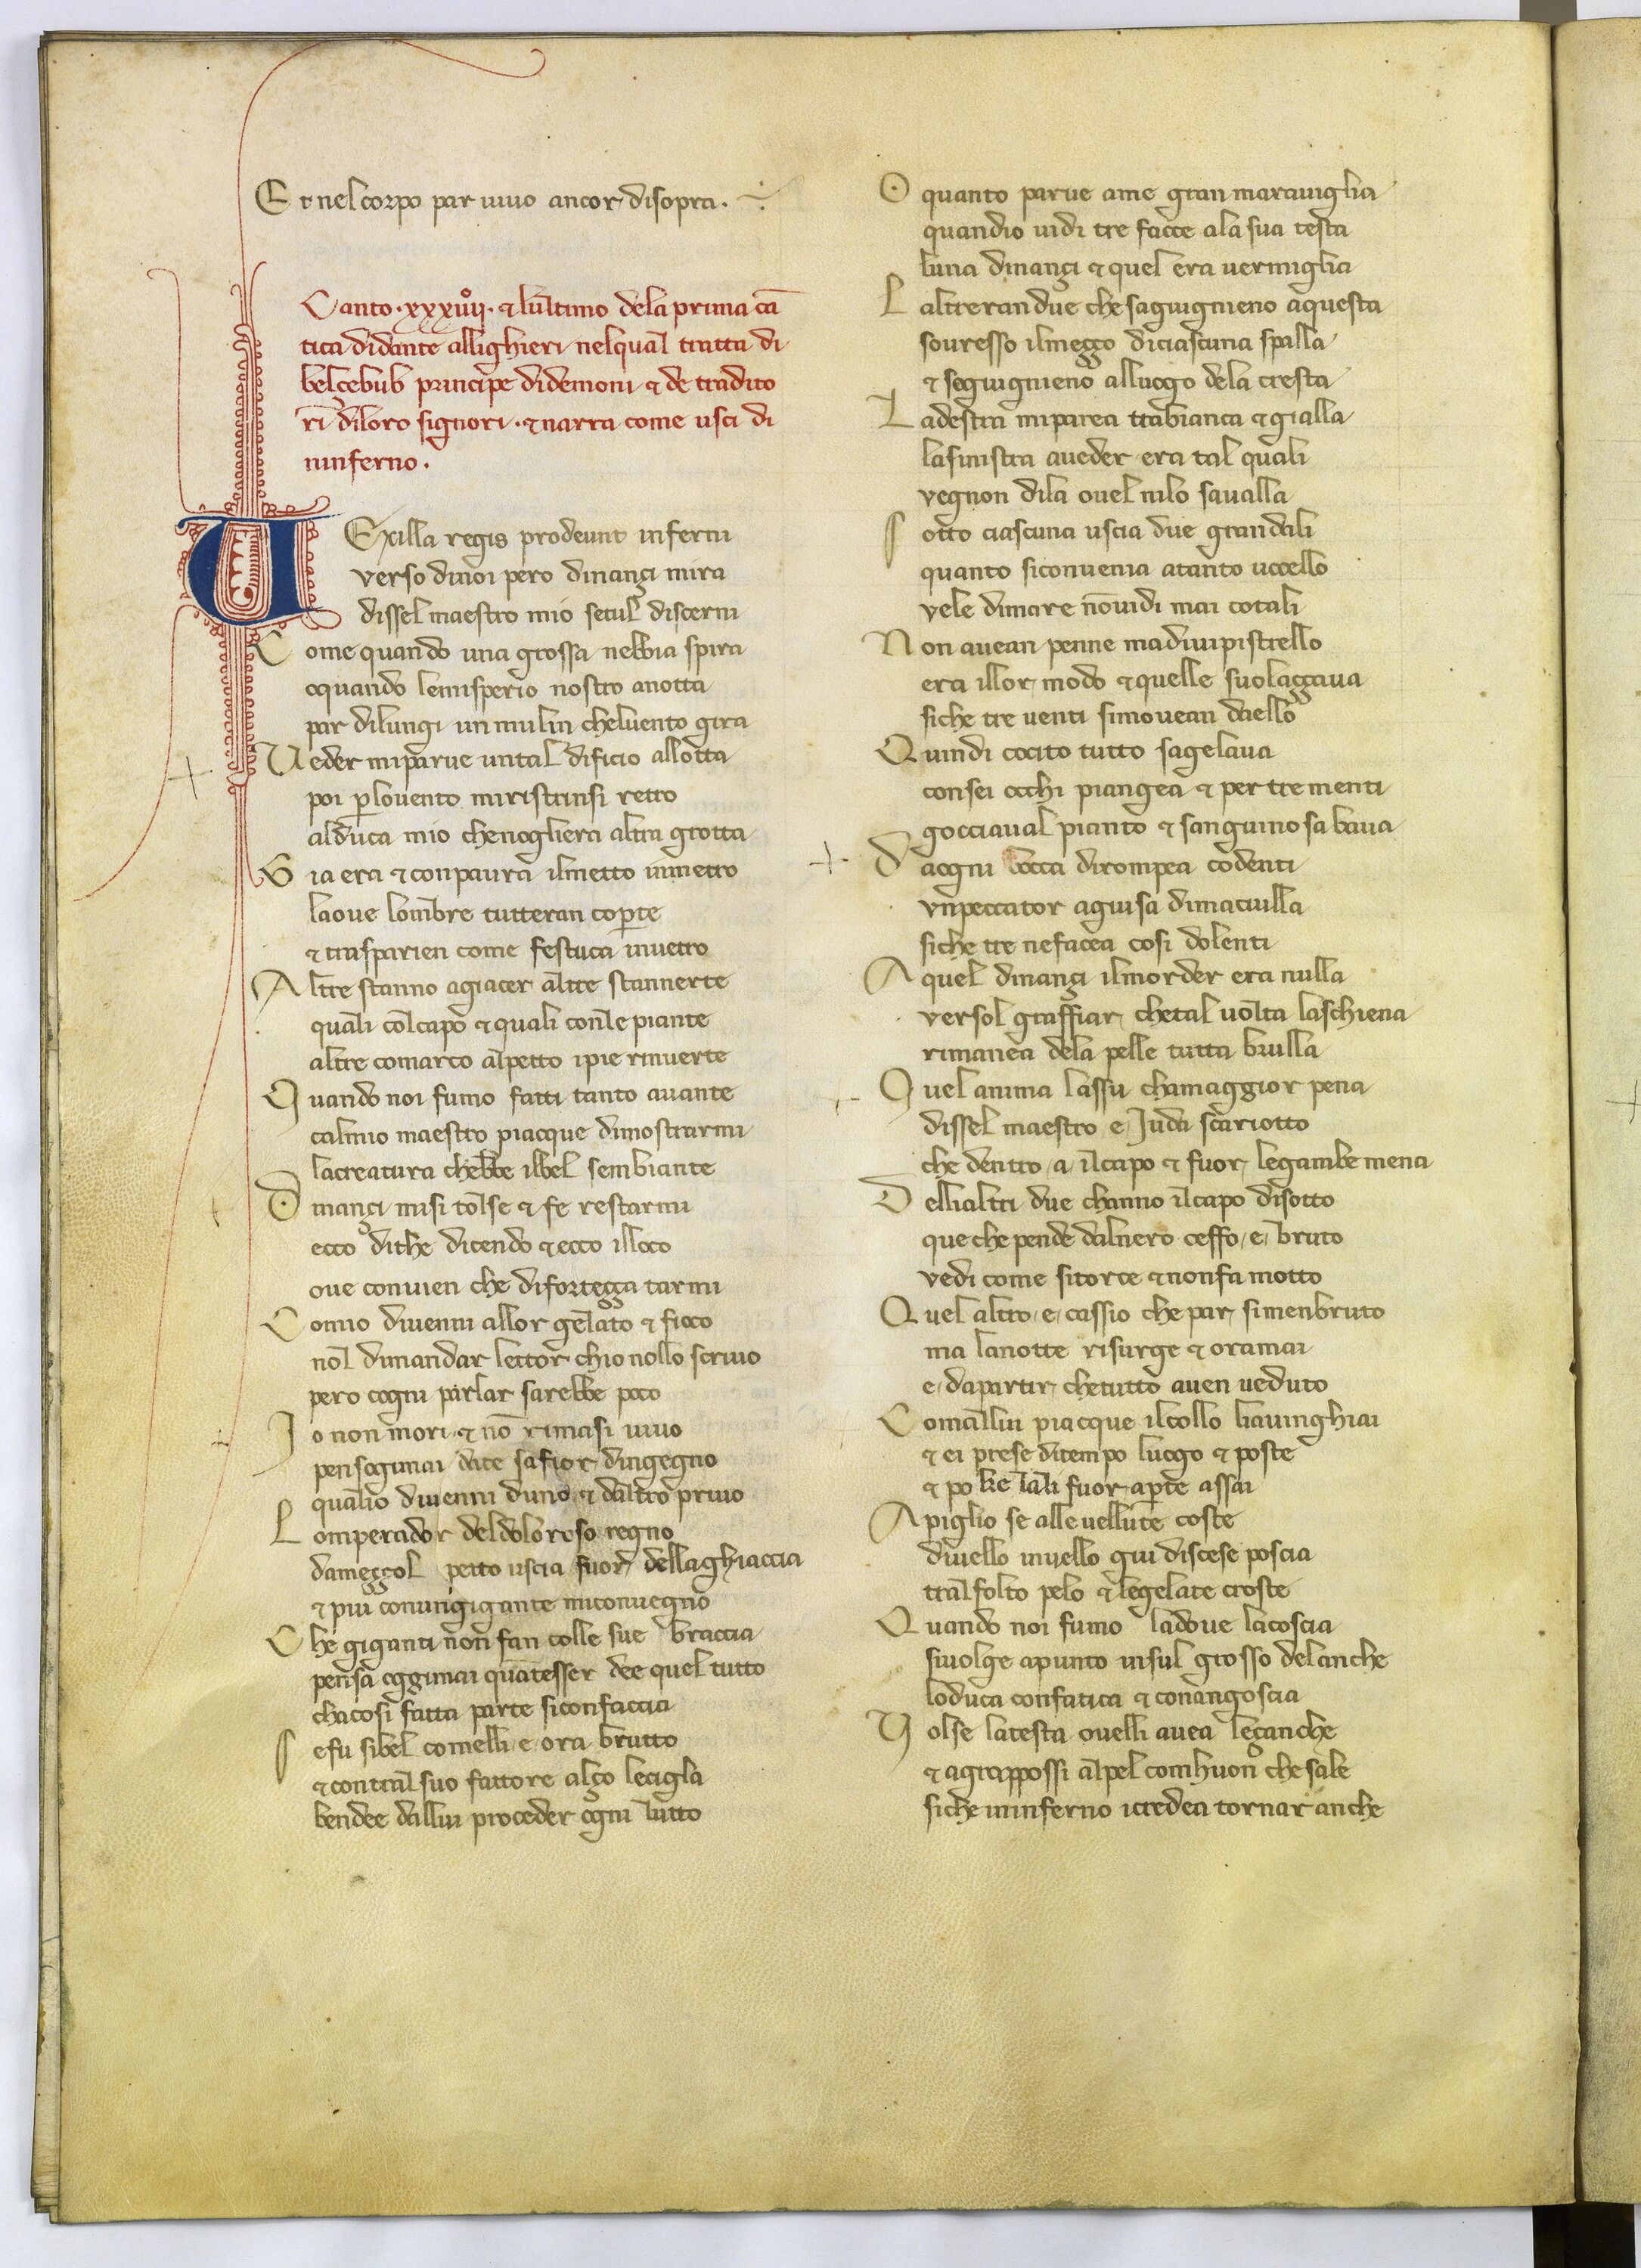 Et nel corpo par uiuo ancor disopra.
Canto .xxxiiijº. & lultimo dela prima cā
tica didante allighieri nelqual tratta di
belçebub principe didemoni & de tradito
ri diloro signori . & narra come usci di
ninferno.
VExilla regis prodeunt inferni
verso dinoi pero dinançi mira
dissel maestro mio setul discerni
Come quando una grossa nebbia spira
oquando lemisperio nostro anotta
par dilungi un mulin cheluento gira
Veder miparue untal dificio allotta
poi ꝑlouento miristrinsi retro
alduca mio chenogliera altra grotta
Gia era & conpaura ilmetto inmetro
laoue lombre tutteran coꝑte
& trasparien come festuca inuetro
Altre stanno agiacer altre stannerte
quali colcapo & quali conle piante
altre comarco alpetto ipie rinuerte
Quando noi fumo fatti tanto auante
calmio maestro piacque dimostrarmi
lacreatura chebbe ilbel sembiante
Dinançi misi tolse & fe restarmi
ecco dithe dicendo & ecco illoco
oue conuien che difortegga tarmi
Comio diuenni allor gelato & fioco
nol dimandar lettor chio nollo scriuo
pero cogni parlar sarebbe poco
Io non mori & nō rimasi uiuo
pensogimai date safior dingegno
qualio diuenni duno & daltro priuo
Lomperador deldoloroso regno
dameggol petto uscia fuor dellaghiaccia
& piu conungigante miconuegno
Che giganti non fan colle sue braccia
pensa oggimai quātesser dee quel tutto
chacosi fatta parte siconfaccia
Sefu sibel comelli e ora brutto
& contral suo fattore alço lecigla
bendee dallui proceder ogni lutto
O quanto parue ame gran marauiglia
quandio uidi tre facce ala sua testa
luna dinançi & quel era uermiglia
Laltreran due che sagiugnieno aquesta
souresso ilmeggo diciascuna spalla
& segiugnieno alluogo dela cresta
Ladestra miparea trabianca & gialla
lasinistra aueder era tal quali
vegnon dila ouel nilo saualla
Sotto ciascuna uscia due grandali
quanto siconuenia atanto uccello
vele dimare nōuidi mai cotali
Non auean penne madiuipistrello
era illor modo & quelle suolaggaua
siche tre uenti simouean daello
Quindi cocito tutto sagelaua
consei occhi piangea & per tre menti
gocciaual pianto & sanguinosa baua
Daogni bocca dirompea codenti
vnpeccator aguisa dimaciulla
siche tre nefacea cosi dolenti
Aquel dinançi ilmorder era nulla
versol graffiar chetal uolta laschiena
rimanea dela pelle tutta brulla
Quel anima lassu chamaggior pena
dissel maestro e Juda scariotto
che dentro a ilcapo & fuor legambe mena
Dellialtri due channo ilcapo disotto
que che pende dalnero ceffo e bruto
vedi come sitorce & nonfa motto
Quel altro e cassio che par simenbruto
ma lanotte risurge & oramai
e dapartir chetutto auen ueduto
Comallui piacque ilcollo liauinghiai
& ei prese ditempo luogo & poste
& po ke lali fuor aꝑte assai
Apiglio se alle uellute coste
diuello inuello giu discese poscia
tralfolto pelo & legelate croste
Quando noi fumo ladoue lacoscia
siuolge apunto insul grosso delanche
loduca confatica & conangoscia
Volse latesta ouelli auea leçanche
& agrappossi alpel comhuon che sale
siche inninferno icredea tornar anche